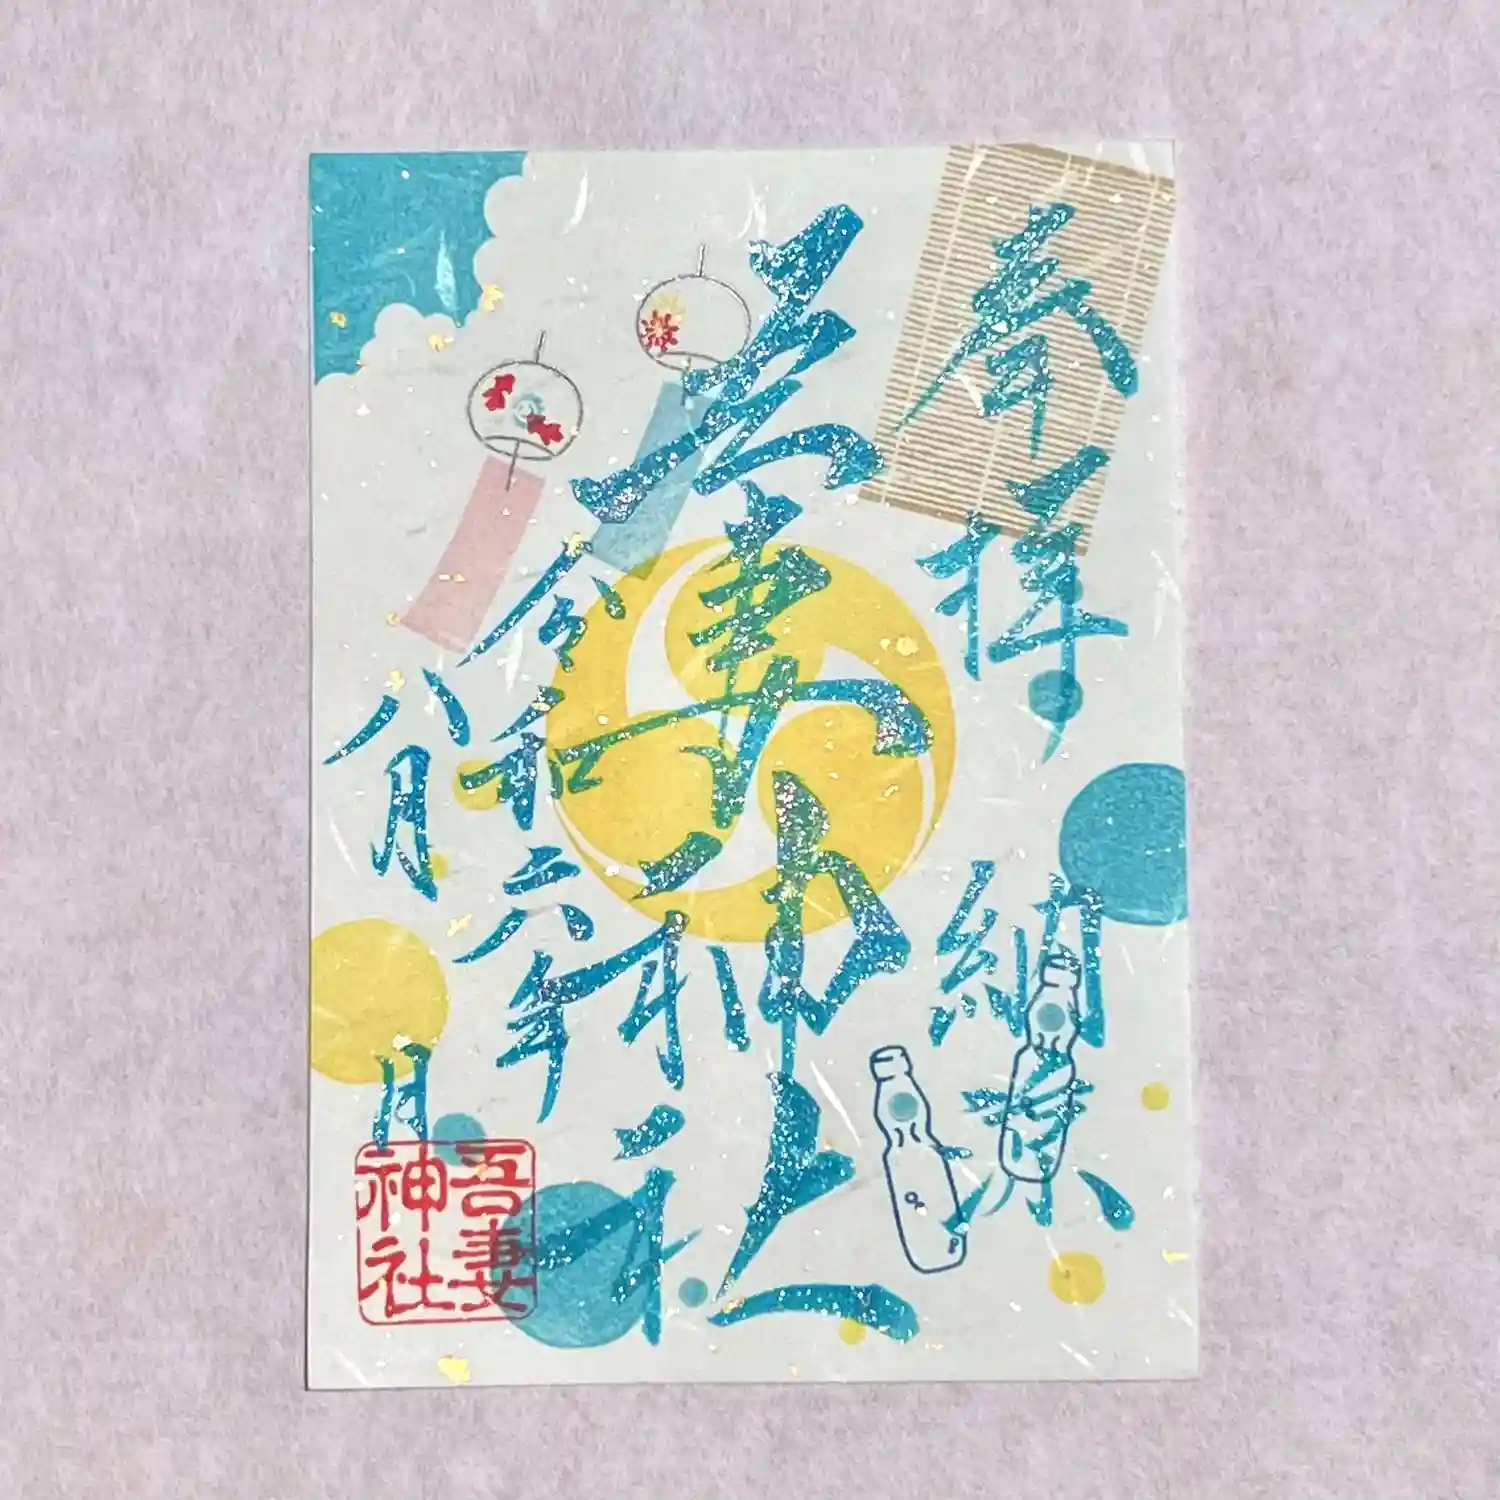 奉拝
納涼
吾妻神社
令和六年
八月
日
吾妻
神社